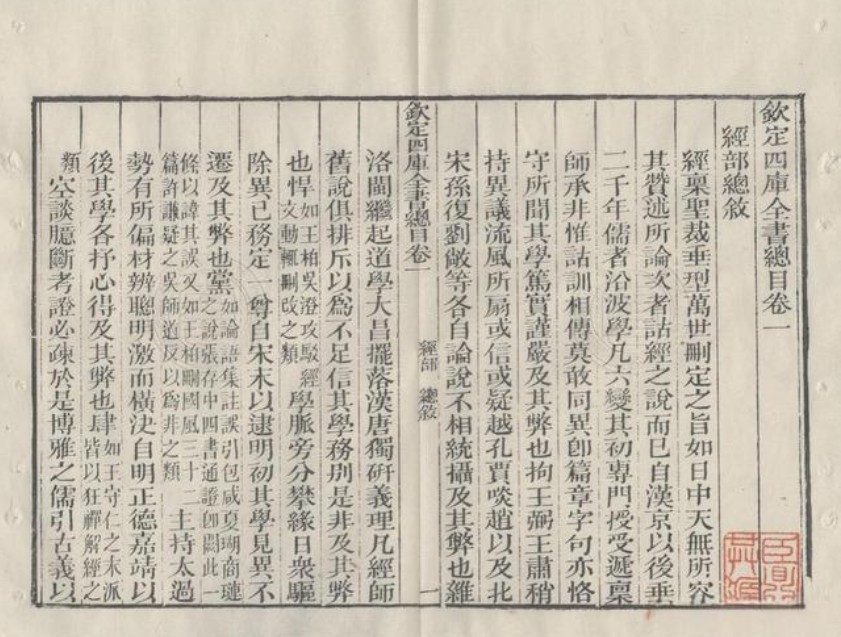 欽定四庫全書總目卷一
經部總敘
經稟聖裁垂型萬世刪定之旨如日中天無所容
其贊述所論次者詁經之說而已自漢京以後垂
二千年儒者沿波學凡六變其初專門授受遞稟
師承非惟詁訓相傳莫敢同異卽篇章字句亦恪
守所聞其學篤實謹嚴及其弊也拘王弼王肅稍
持異議流風所扇或信或疑越孔賈啖趙以及北
宋孫復劉敞等各自論說不相統攝及其弊也雜
欽定四庫全書總目卷一 經部 總敘 一
洛閩繼起道學大昌擺落漢唐獨硏義理凡經師
舊說俱排斥以爲不足信其學務別是非及其弊
也悍如王柏吳澄攻駁經文動輒刪改之類學脈旁分攀緣日衆驅
除異已務定一尊自宋末以逮明初其學見異不
遷及其弊也黨如論語集註誤引包咸夏瑚商璉之說張存中四書通證卽闕此一
條以諱其誤又如王柏刪國風三十二篇許謙疑之吳師道反以爲非之類主持太過
勢有所偏材辨聰明激而橫決自明正德嘉靖以
後其學各抒心得及其弊也肆如王守仁之末派皆以狂禪解經之
類空談臆斷考證必疎於是博雅之儒引古義以